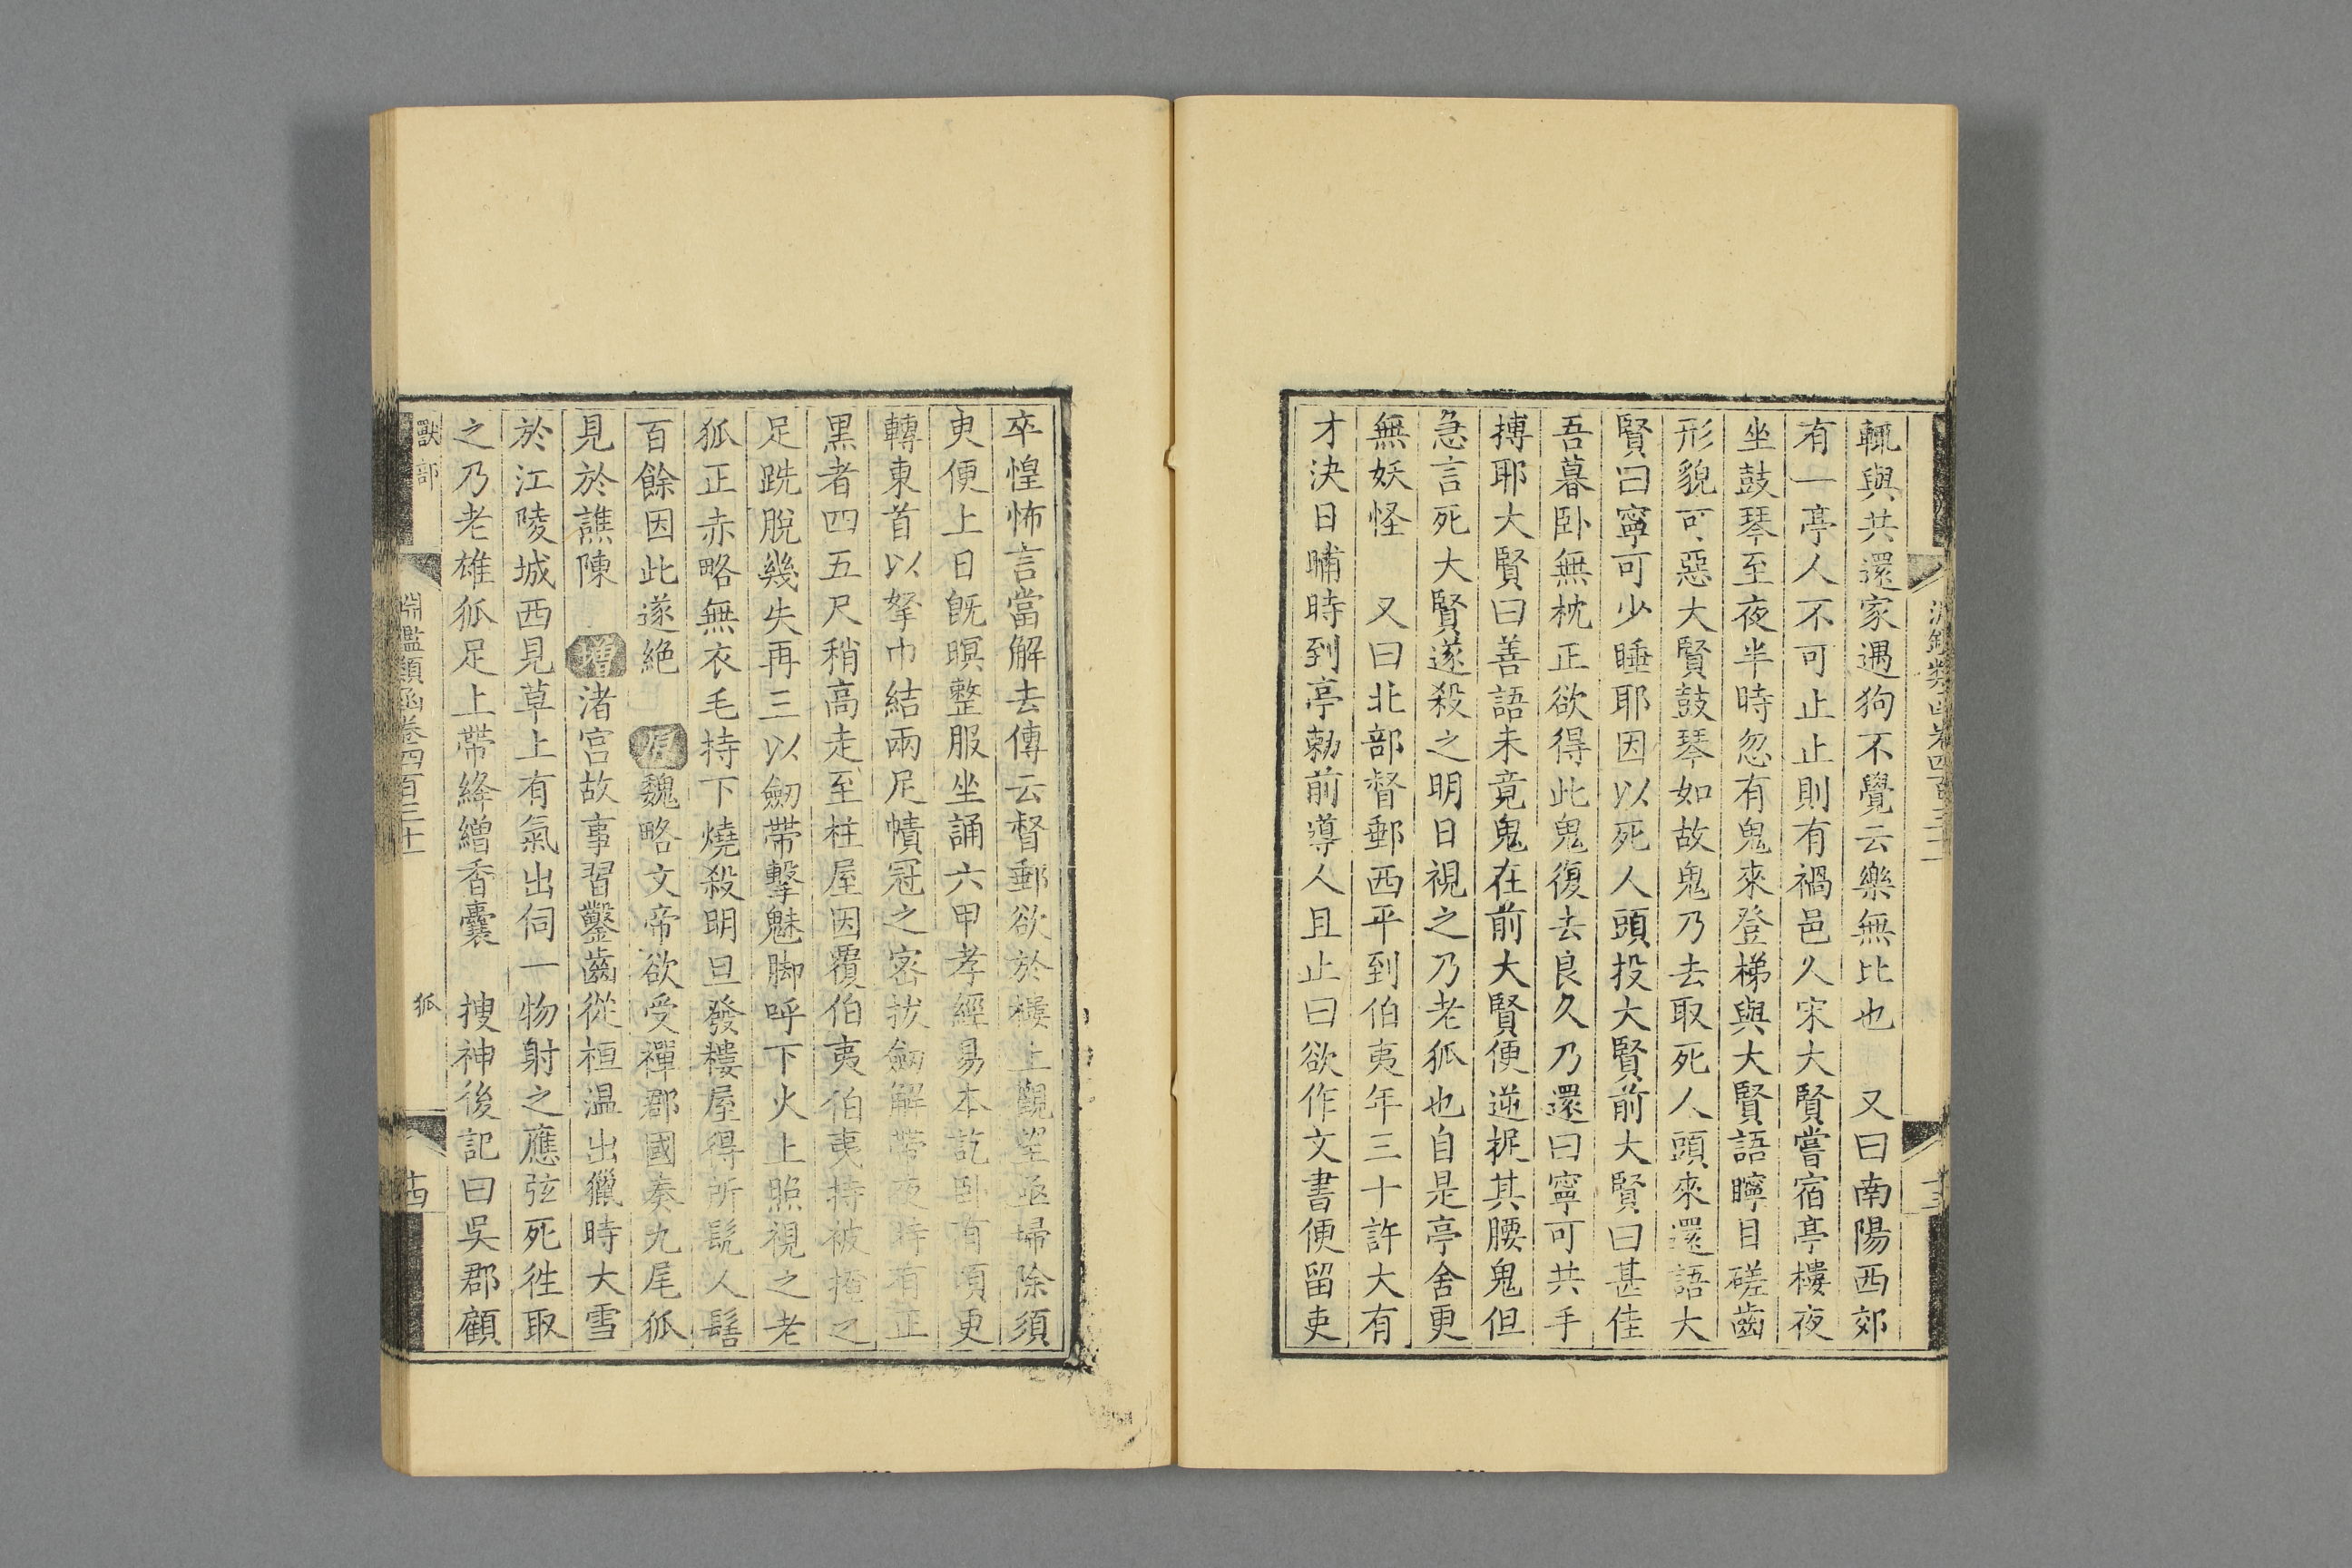 輒與共還家遇狗不覺云樂無比也　又曰南陽西郊
有一亭人不可止止則有禍邑人宋大賢嘗宿亭樓夜
坐鼓琴至夜半時忽有鬼來登梯與大賢語矃目磋齒
形貌可惡大賢鼓琴如故鬼乃去取死人頭來還語大
賢曰寧可少睡耶因以死人頭投大賢前大賢曰甚佳
吾暮卧無枕正欲得此鬼復去良久乃還曰寧可共手
搏耶大賢曰善語未竟鬼在前大賢便逆捉其腰鬼但
急言死大賢遂殺之明日視之乃老狐也自是亭舍更
無妖怪　又曰北部督郵西平到伯夷年三十許大有
才決日晡時到亭勑前導人且止曰欲作文書便留吏
卒惶怖言當解去傳云督郵欲於樓上觀望亟掃除須
㬰便上日旣暝整服坐誦六甲孝經易本訖卧有頃更
轉東首以拏巾結兩足幘冠之密拔劒解帶夜時有正
黑者四五尺稍高走至柱屋因覆伯夷伯夷持被掩之
足跣脫幾失再三以劒帶擊魅脚呼下火上照視之老
狐正赤略無衣毛持下燒殺明旦發樓屋得所髡人髻
百餘因此遂絶　原魏略文帝欲受禪郡國奏九尾狐
見於譙陳　增渚宮故事習鑿齒從桓温出獵時大雪
於江陵城西見草上有氣出伺一物射之應弦死徃取
之乃老雄狐足上帶絳繒香囊　搜神後記曰吳郡顧
獸部　淵鑑類函卷四百三十一　狐　十四